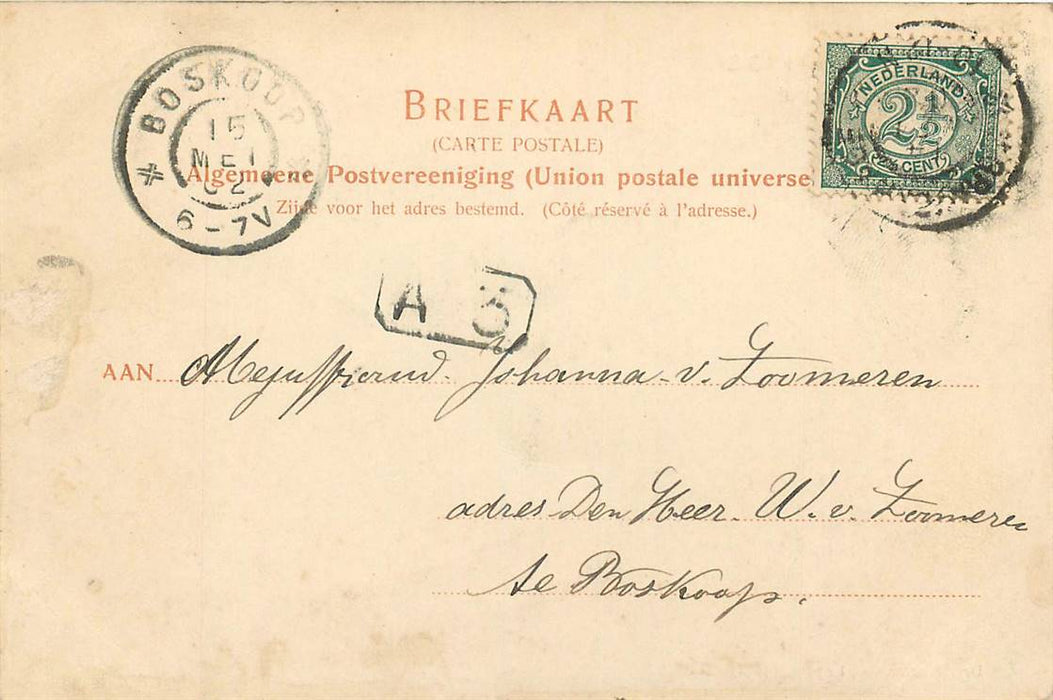 BOSKOOP
15
MEI
02
6-7V
BRIEFKAART
(CARTE POSTALE)
Algemeene Postvereeniging (Union postale universe
Zijde voor het adres bestemd. (Côté réservé à l'adresse.)
NEDERLAND
2½
CENT
A 3
AAN Mejuffrouw Johanna v. Zoomeren
adres Den Heer W. v. Zoomeren
te Boskoop.